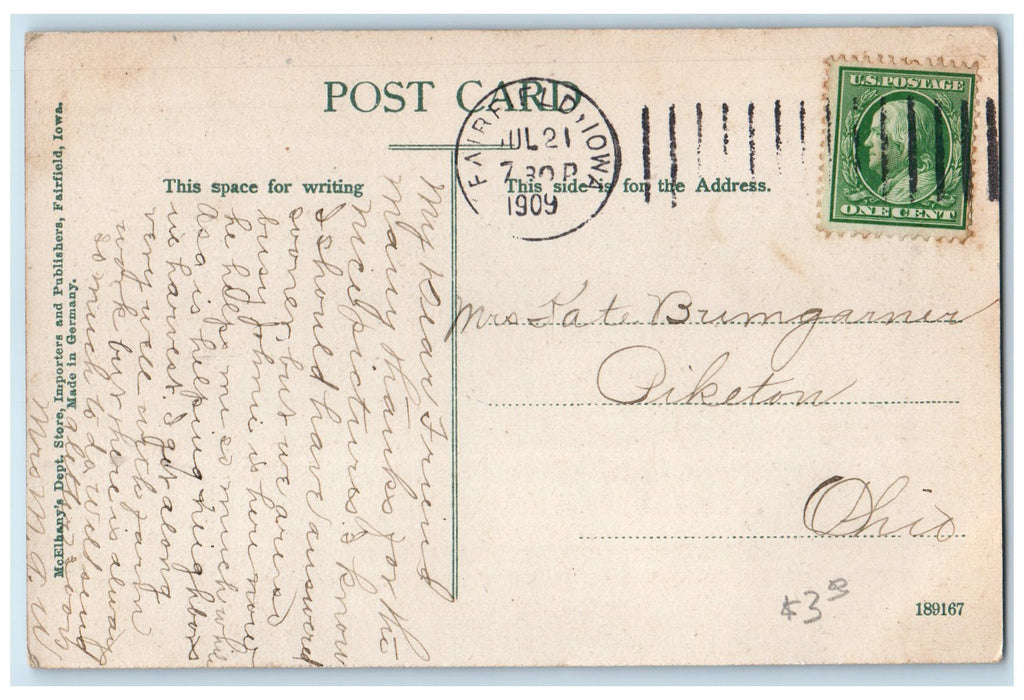 POST CARD
FAIRFIELD, IOWA
JUL 21
7 30 P
1909
U.S. POSTAGE
ONE CENT
This space for writing
This side is for the Address.
McElhany's Dept. Store, Importers and Publishers, Fairfield, Iowa.
Made in Germany.
My Dear Friend
Many thanks for the
nice pictures. I know
I should have answered
sooner, but we are so
busy Johnie is here now
he helps me so much while
Asa is helping neighbors
in harvest. I get along
very well with farm
work but there is always
so much to do will send
Mrs. M. A. W.
Mrs Kate Bumgarner
Piketon
Ohio
$3
189167